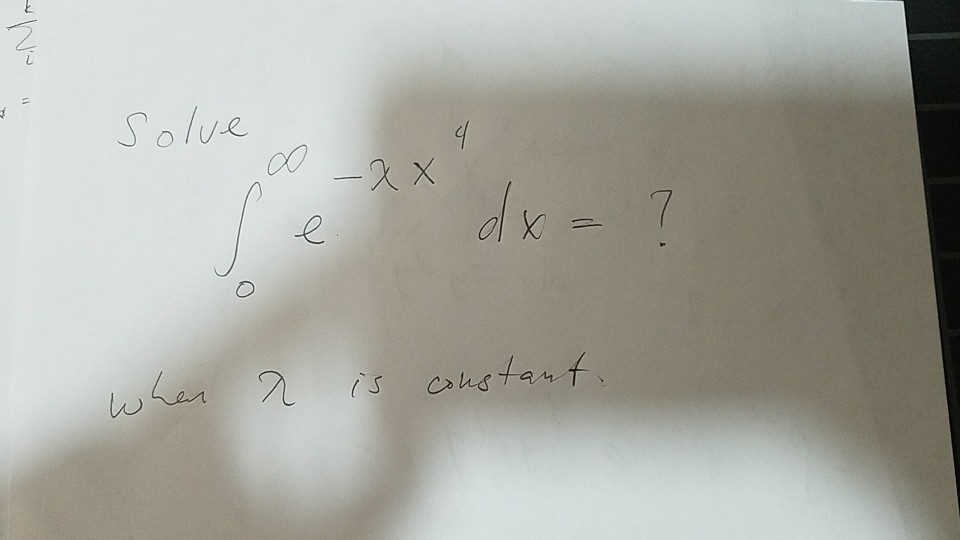 k
Σ
i
=
Solve
∫₀^∞ e^{-λx⁴} dx = ?
when λ is constant.